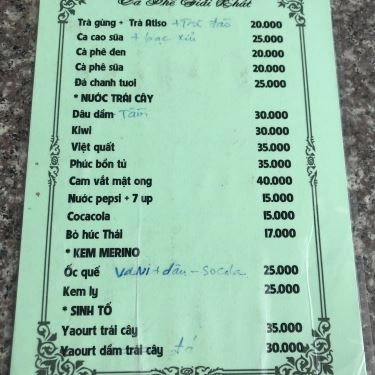 Cà Phê Giải Khát
Trà gừng + Trà Atiso + Trà đào 20.000
Ca cao sữa + bạc xỉu 25.000
Cà phê đen 20.000
Cà phê sữa 20.000
Đá chanh tươi 25.000
* NƯỚC TRÁI CÂY
Dâu dầm Tằm 30.000
Kiwi 30.000
Việt quất 35.000
Phúc bồn tử 35.000
Cam vắt mật ong 40.000
Nước pepsi + 7 up 15.000
Cocacola 15.000
Bò húc Thái 17.000
* KEM MERINO
Ốc quế vani + dâu - Socola 25.000
Kem ly 25.000
* SINH TỐ
Yaourt trái cây 35.000
Yaourt dầm trái cây đá 30.000